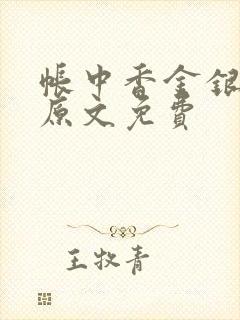 帐中香金银
原文免费
王牧青